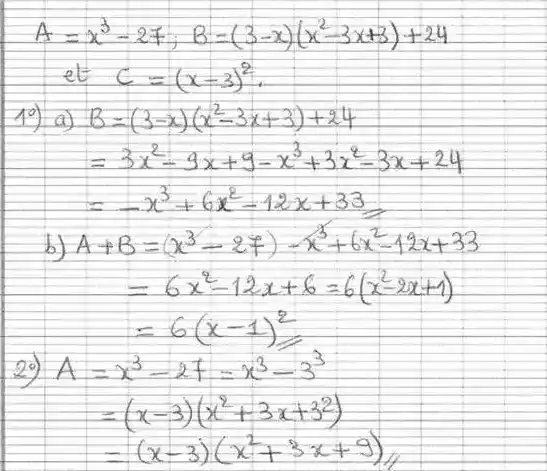 A = x³ - 27; B = (3-x)(x²-3x+3) + 24
et C = (x-3)².
1°) a) B = (3-x)(x²-3x+3) + 24
= 3x² - 9x + 9 - x³ + 3x² - 3x + 24
= -x³ + 6x² - 12x + 33
b) A + B = (x³ - 27) - x³ + 6x² - 12x + 33
= 6x² - 12x + 6 = 6(x² - 2x + 1)
= 6(x - 1)²
2°) A = x³ - 27 = x³ - 3³
= (x-3)(x² + 3x + 3²)
= (x-3)(x² + 3x + 9)